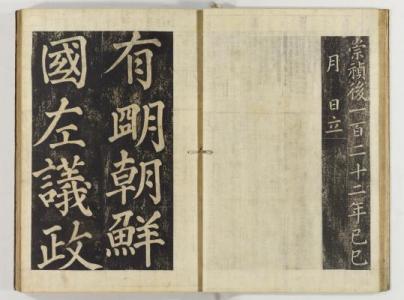 崇禎後一百二十二年己巳
月 日立
有朙朝鮮
國左議政